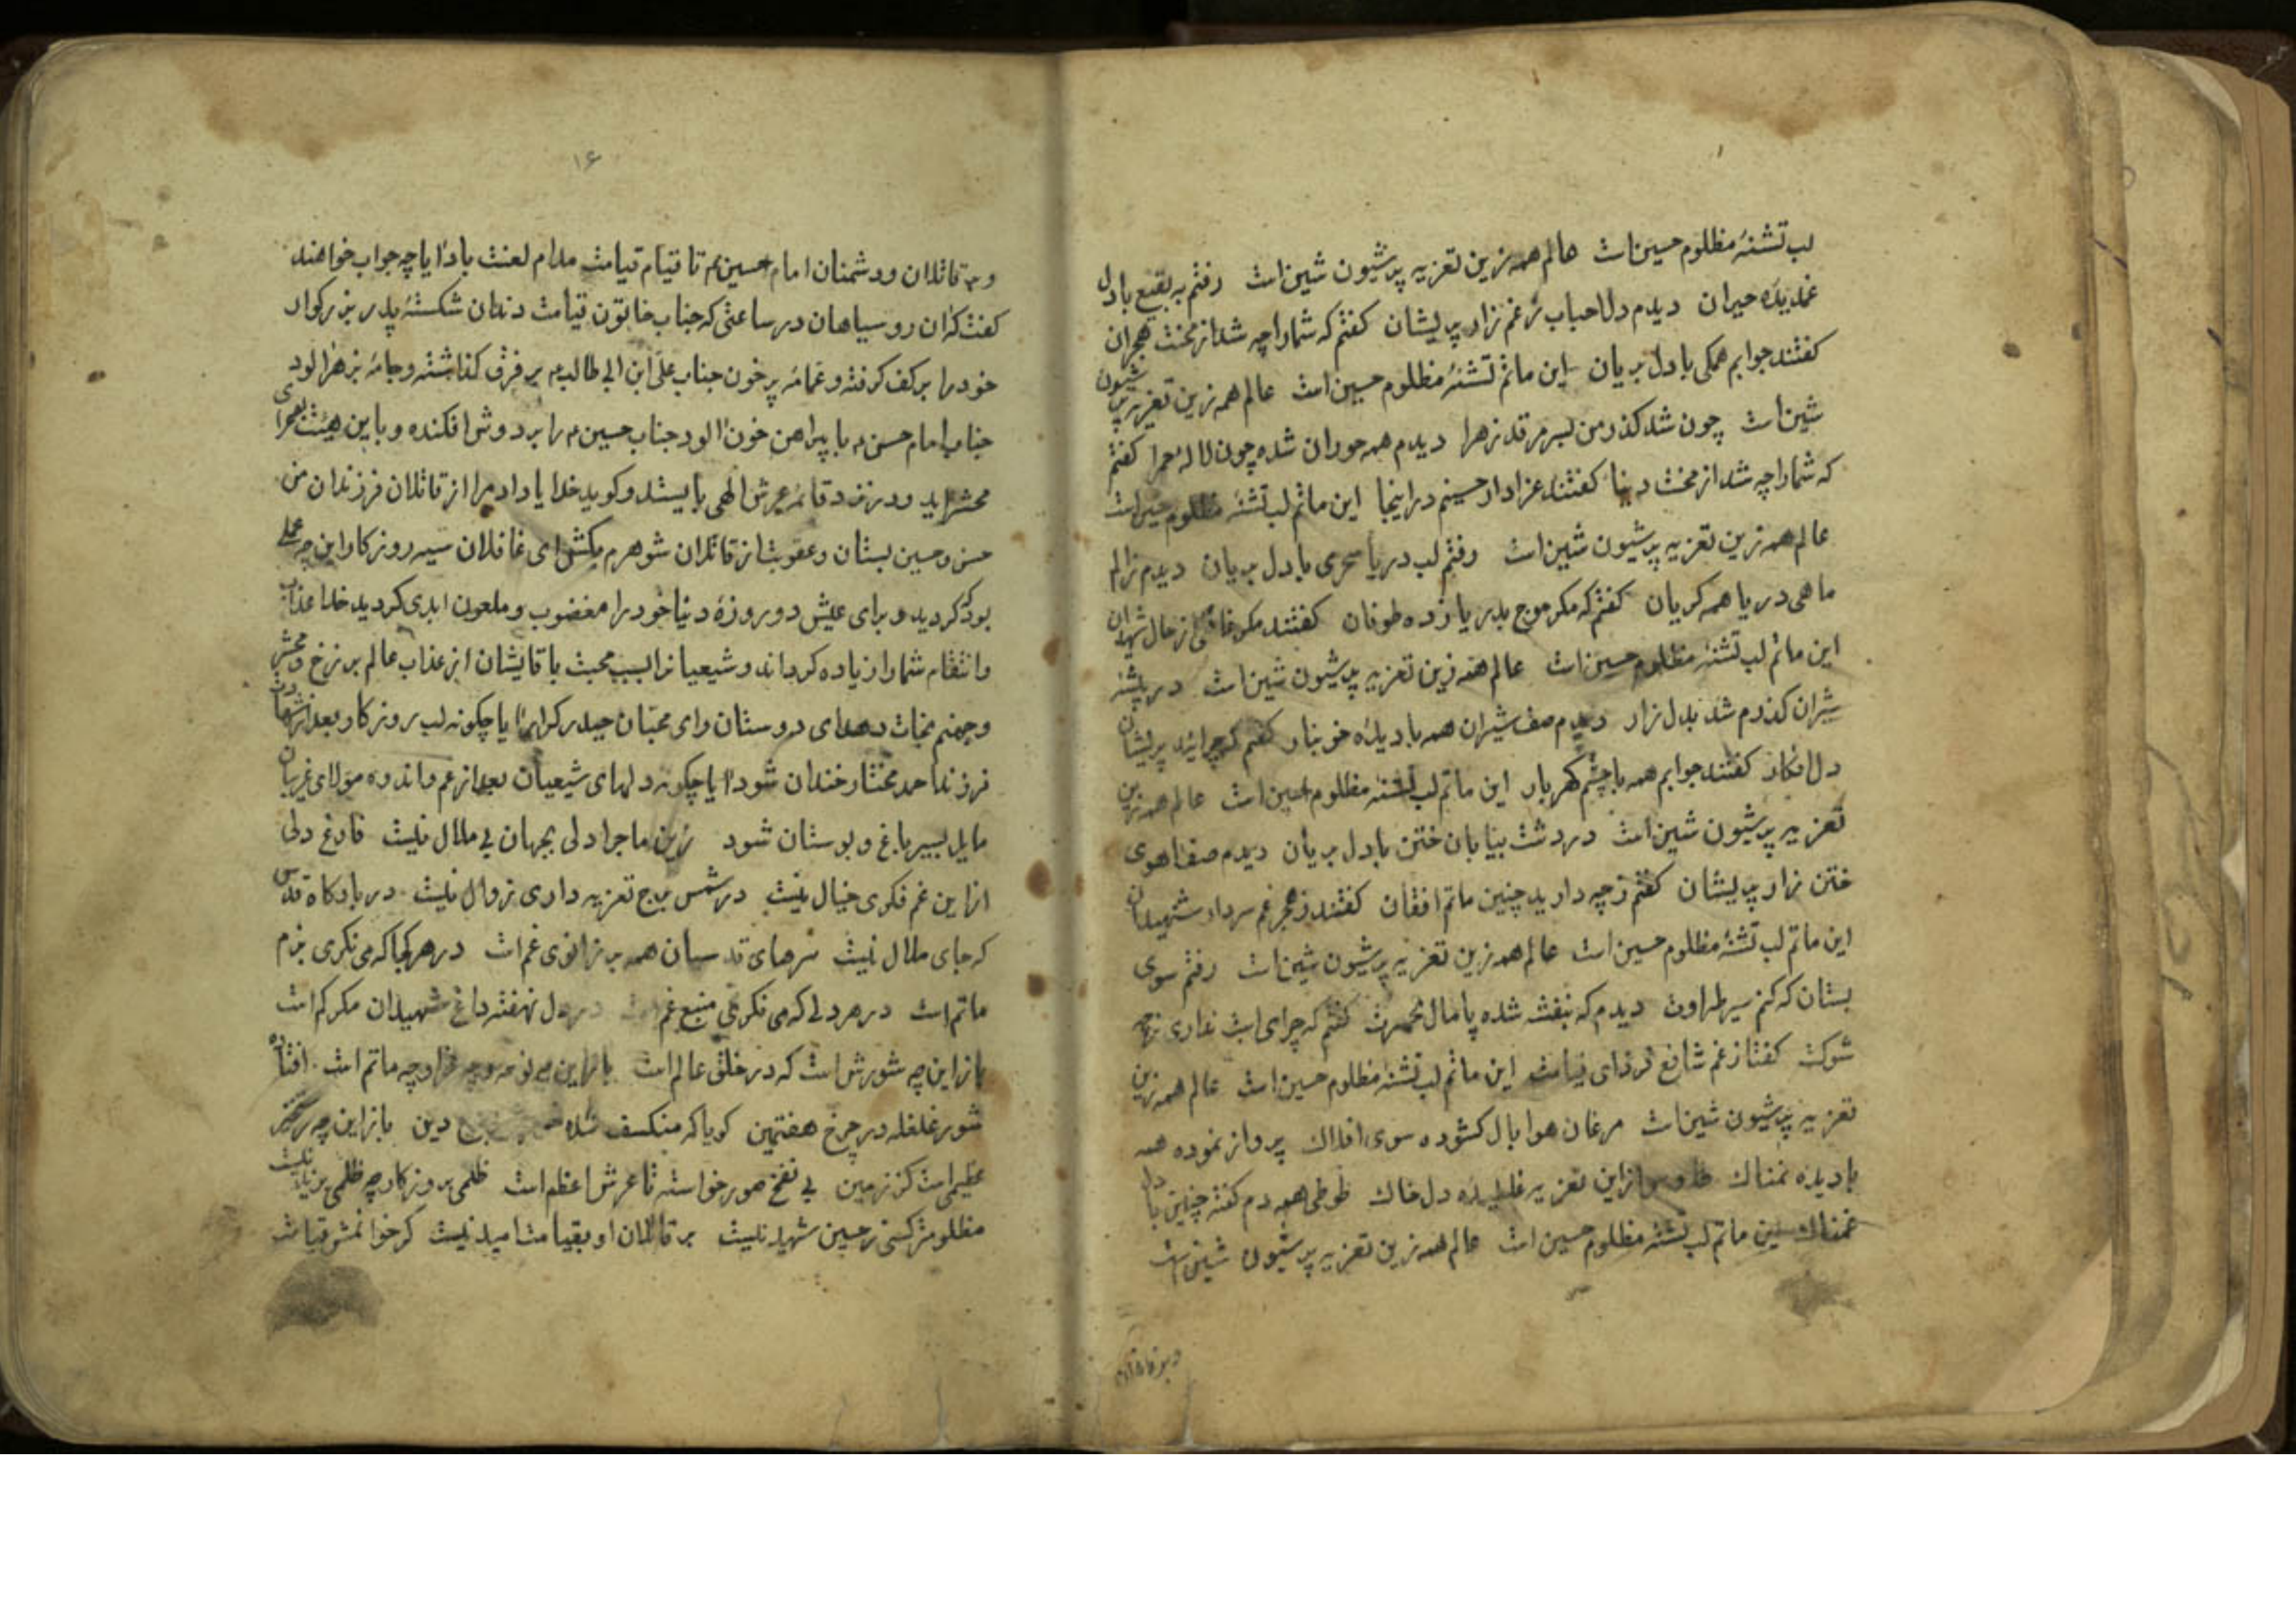 لب تشنهٔ مظلوم حسین است عالم همه زین تعزیه پرشیون شین است رفتم به بقیع با دل
غمدیدهٔ حیران دیدم دل احباب ز غم زار پریشان کفتم که شما را چه شد از محنت هجران
کفتند جوابم همکی با دل بریان این ماتم تشنهٔ مظلوم حسین است عالم همه زین تعزیه پر شیون
شین است چون شد کذر من بسر مرقد زهرا دیدم همه حوران شده چون لالهٔ حمرا کفتم
که شما را چه شد از محنت دنیا کفتند عزادار حسینم در اینجا این ماتم لب تشنهٔ مظلوم حسین است
عالم همه زین تعزیه پرشیون شین است رفتم لب دریا سحری با دل بریان دیدم ز الم
ماهی دریا همه کریان کفتم که مکر موج بدریا زده طوفان کفتند مکر غافلی از حال شهیدان
این ماتم لب تشنهٔ مظلوم حسین است عالم همه زین تعزیه پرشیون شین است در بیشه
شیران کذرم شد بدل زار دیدم صف شیران همه با دیدهٔ خونبار کفتم که چرائید پریشان
دل افکار کفتند جوابم همه با چشم کهربار این ماتم لب تشنه مظلوم حسین است عالم همه زین
تعزیه پرشیون شین است در دشت بیابان ختن با دل بریان دیدم صف اهوی
ختن زار پریشان کفتم ز چه دارید چنین ماتم افغان کفتند ز هجر غم سردار شهیدان
این ماتم لب تشنهٔ مظلوم حسین است عالم همه زین تعزیه پرشیون شین است رفتم سوی
بستان که کنم سیر طراوت دیدم که بنفشه شده پامال کفتم که چرا اب نداری
شوکت کفتا ز غم شافع فردای قیامت این ماتم لب تشنهٔ مظلوم حسین است عالم همه زین
تعزیه پرشیون شین است مرغان هوا بال کشوده سوی افلاك پرواز نموده همه
با دیده نمناك از این تعزیه غلطیده دل خاك طوطی همه دم کفته چنین با دل
غمناك این ماتم لب تشنه مظلوم حسین است عالم همه زین تعزیه پرشیون شین است
و بر قاتلان
۱۶
و بر قاتلان و دشمنان امام حسین م تا قیام قیامت مدام لعنت باد ایا چه جواب خواهند
کفت که ان روسیاهان در ساعتی که جناب خاتون قیامت دندان شکستهٔ پدر بزرکوار
خود را بر کف کرفته و عمامهٔ پر خون جناب علی ابن ابی طالب م بر فرق کذاشته و جامهٔ بزهر الود
جناب امام حسن م با پیراهن خون الود جناب حسین م را بر دوش افکنده و باین هیئت بصحرای
محشر اید و در نزد قائمهٔ عرش الهی بایستد و کوید خدایا داد مرا از قاتلان فرزندان من
حسن و حسین بستان و عقوبت از قاتلان شوهرم بکش ای غافلان سیه روزکار این چه عملی
بود کردید و برای عیش دو روزهٔ دنیا خود را مغضوب و ملعون ابدی کردید خدا عذاب
و انتقام شما را زیاده کرداند و شیعیان را بسبب محبت با قایشان از عذاب عالم برزخ و محشر
و جهنم نجات دهد ای دوستان و ای محبّان حیدر کرار ایا چکونه لب روزکار بعد از شهادت
فرزند احمد مختار خندان شود ایا چکونه دلهای شیعیان بعد از غم و اندوه مولای غریبان
مایل بسیر باغ و بوستان شود زین ماجرا دلی بجهان بی ملال نیست فارغ دلی
از این غم فکری خیال نیست در شمس برج تعزیه داری زوال نیست در بارکاه قدس
که جای ملال نیست سرهای قدسیان همه بر زانوی غم است در هر کجا که می نکری بزم
ماتم است در هر دلی که می نکری منبع غم است در دل نهفته داغ شهیدان مکر کم است
باز این چه شورش است که در خلق عالم است باز این چه نوحه و چه عزا و چه ماتم است افتاده
شور غلغله در چرخ هفتمین کویا که منکسف شده دین باز این چه رستخیز
عظیمی است کز زمین بی نفخ صور خواسته تا عرش اعظم است ظلمی بروزکار چه ظلمی نیست
مظلومتر کسی ز حسین شهید نیست بر قاتلان او بقیامت امید نیست کر خوانمش قیامت